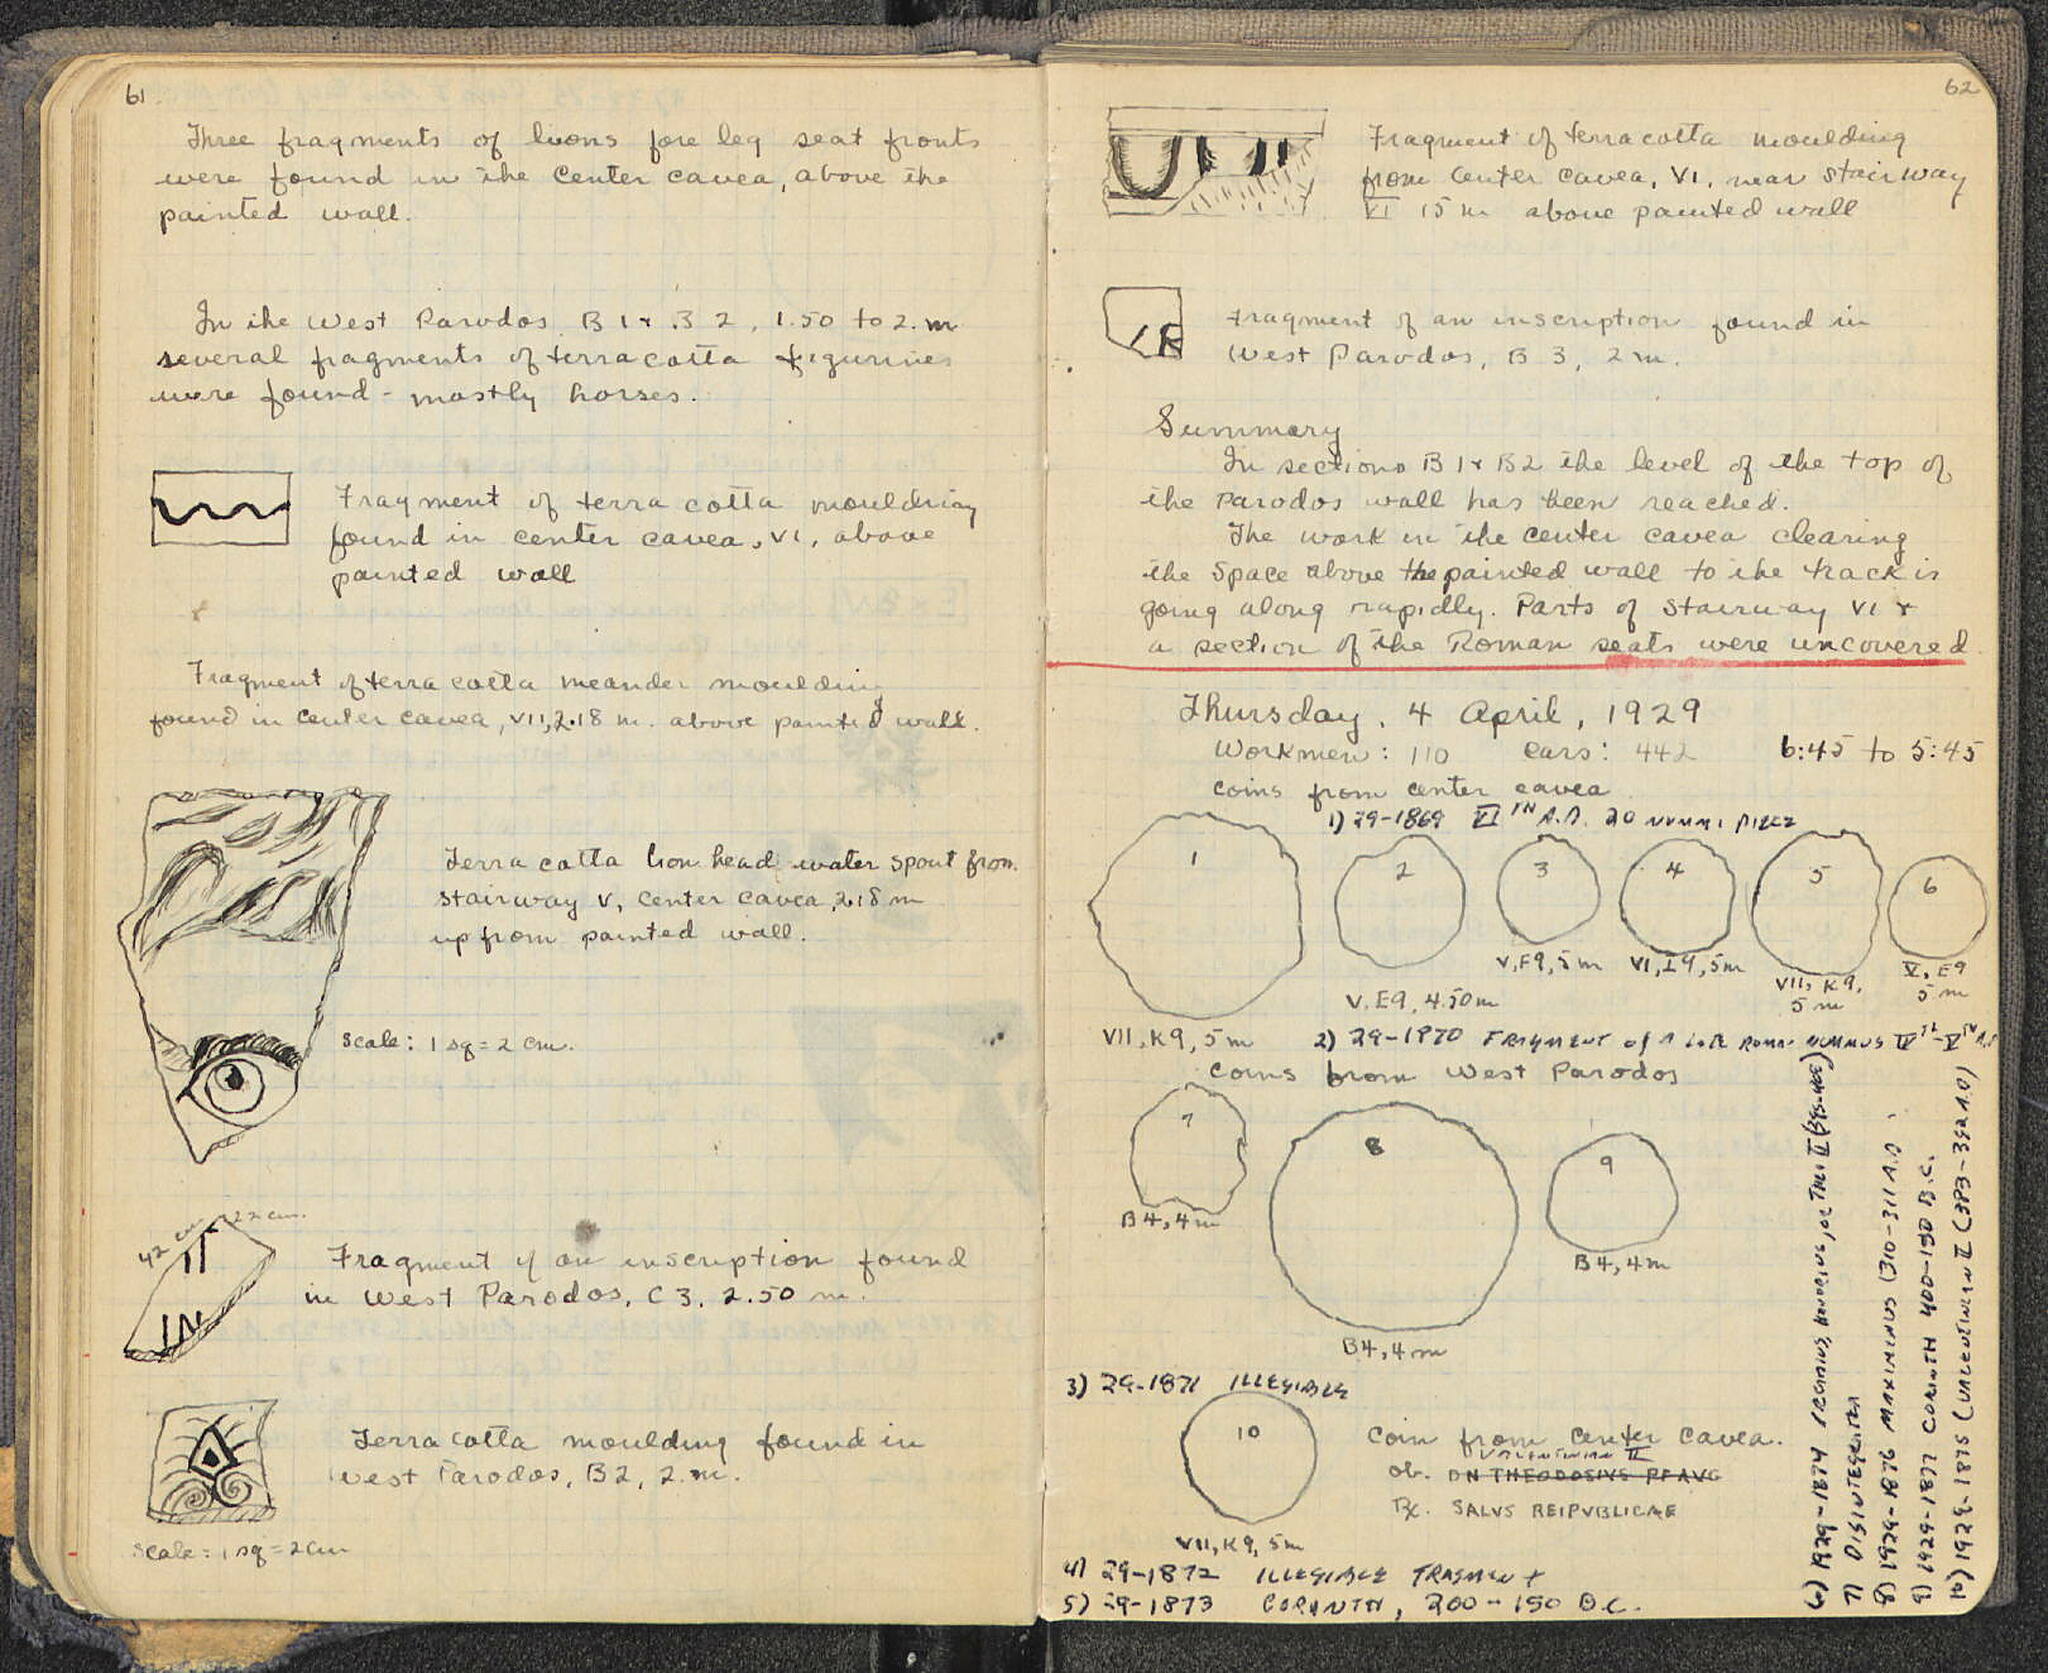 61
Three fragments of lions fore leg seat fronts
were found in the center cavea, above the
painted wall.
In the West Parodos B 1 & B 2, 1.50 to 2. m
several fragments of terracotta figurines
were found - mostly horses.
Fragment of terra cotta moulding
found in center cavea, VI, above
painted wall
Fragment of terra cotta meander moulding
found in center cavea, VII, 2.18 m. above painted wall.
Terra cotta lion head water spout from
stairway V, center cavea, 2.18 m
up from painted wall.
Scale: 1 sq = 2 cm.
42 cm 22 cm.
IN
Fragment of an inscription found
in West Parodos, C 3, 2.50 m.
Terra cotta moulding found in
West Parodos, B2, 2. m.
Scale: 1 sq = 2 cm
62
Fragment of terracotta moulding
from center cavea, VI, near stairway
VI 15 m above painted wall
Fragment of an inscription found in
West Parodos, B 3, 2 m.
Summary
In sections B 1 & B2 the level of the top of
the Parodos wall has been reached.
The work in the center cavea clearing
the space above the painted wall to the track is
going along rapidly. Parts of stairway VI &
a section of the Roman seats were uncovered.
Thursday, 4 April, 1929
Workmen: 110 cars: 442 6:45 to 5:45
Coins from center cavea
1) 29-1869 VI TH A.D. 20 NUMMI PIECE
1 2 3 4 5 6
V, F9, 5 m VI, I9, 5m VII, K9, 5 m V, E9 5 m
V. E9, 4.50m
VII, K9, 5 m
2) 29-1870 FRAGMENT of A LATE ROMAN NUMMUS IV TH - V TH A.D
Coins from West Parodos
7 8 9
B4, 4m
B4, 4m
B4, 4m
3) 29-1871 ILLEGIBLE
10
Coin from Center Cavea.
VALENTINIAN II
Ob. DN THEODOSIVS PF AVG
Rx. SALVS REIPVBLICAE
VII, K9, 5m
4) 29-1872 ILLEGIBLE FRAGMENT
5) 29-1873 CORINTH, 200-150 B.C.
6) 1929-1874 ARCADIUS, HONORIUS, or THEO II (395-408)
7) DISINTEGRATED
8) 1929-1876 MAXIMINUS (310-311 A.D.
9) 1929-1877 CORINTH 400-150 B.C.
10) 1929-1875 (VALENTINIAN II (383-392 A.D)